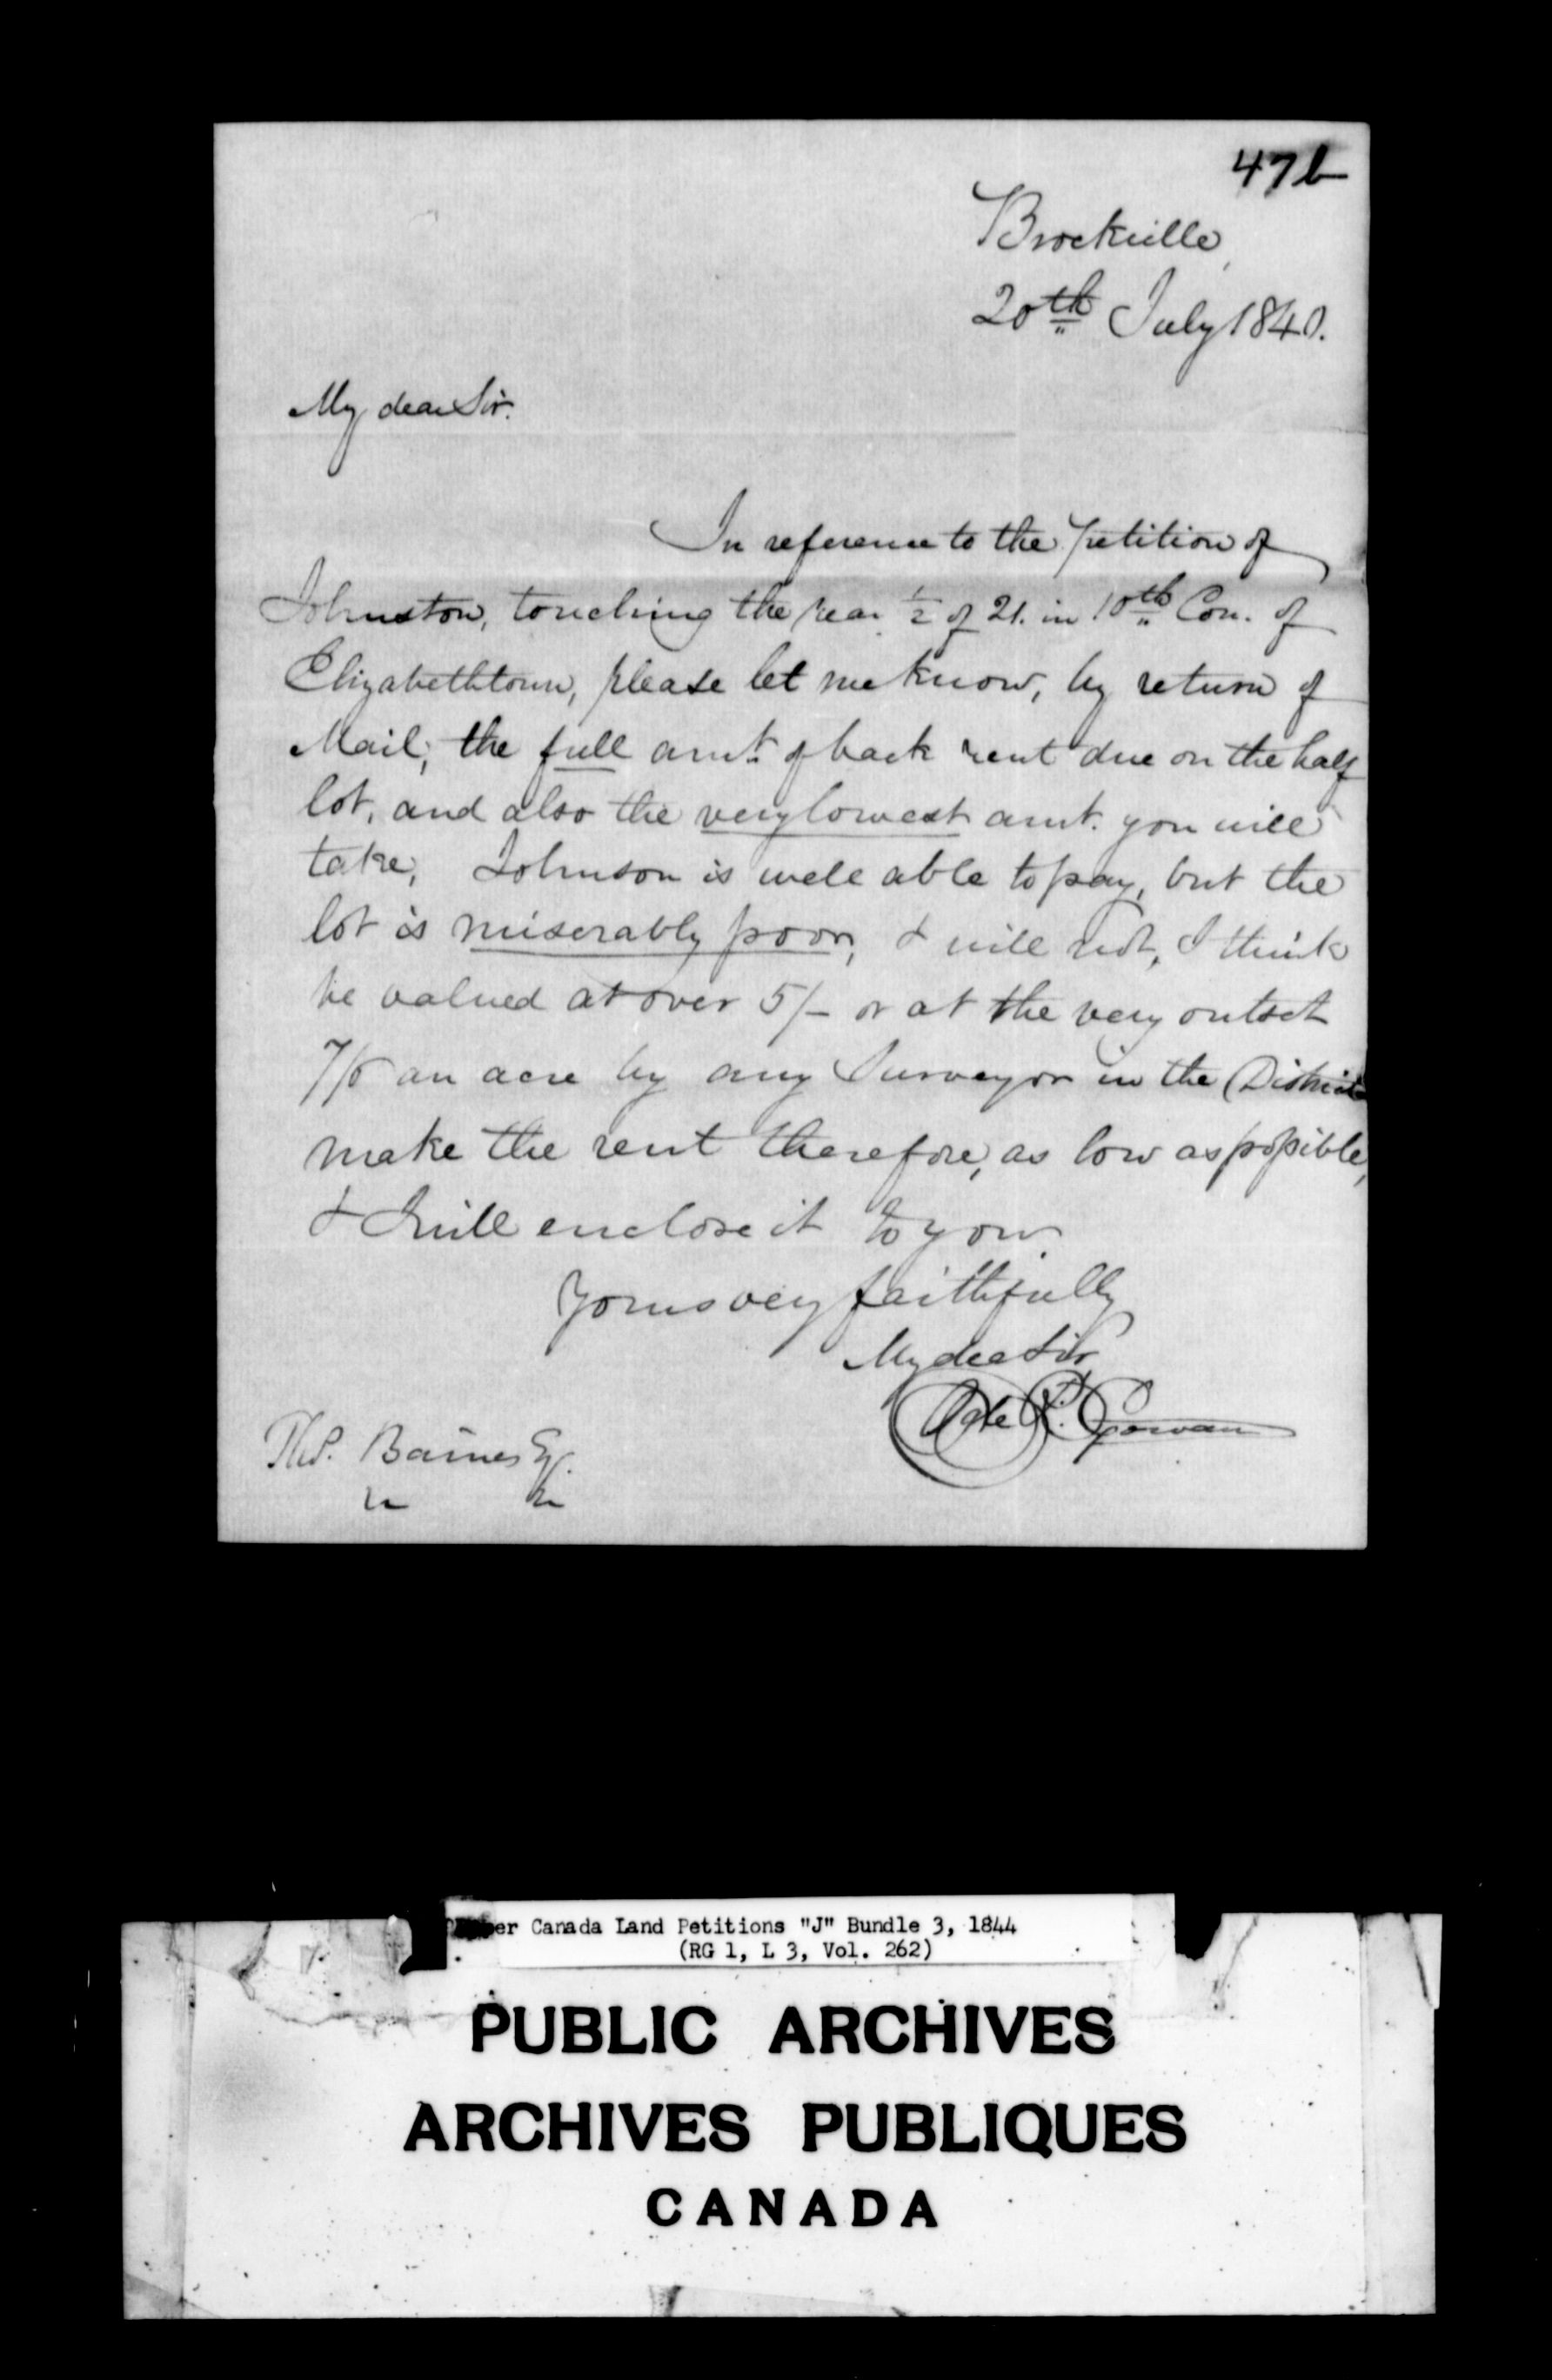 47b
Brockville,
20th July 1840.
My dear Sir.
In reference to the petition of
Johnston, touching the rear ½ of 21. in 10th Con. of
Elizabethtown, please let me know, by return of
Mail, the full amt. of back rent due on the half
lot, and also the very lowest amt. you will
take, Johnson is well able to pay, but the
lot is miserably poor, & will not, I think
be valued at over 5/- or at the very outset
7/6 an acre by any Surveyor in the District
make the rent therefore, as low as possible,
& I will enclose it to you.
Yours very faithfully
My dear Sir
Ogle R. Gowan
Ths. Baines Esq.
Upper Canada Land Petitions "J" Bundle 3, 1844
(RG 1, L 3, Vol. 262)
PUBLIC ARCHIVES
ARCHIVES PUBLIQUES
CANADA